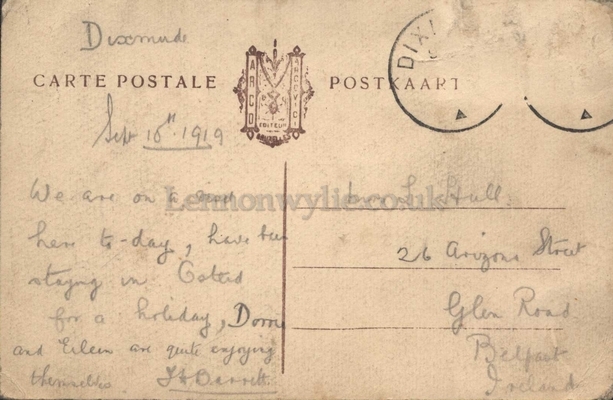 Dixmude
CARTE POSTALE POSTKAART
ARCO
ARCOVICI
EDITEUR
BRUXELLES
DIX
Sep 10th 1919
We are on a
here to-day, have been
staying in Ostend
for a holiday, Dorrie
and Eileen are quite enjoying
themselves. Barrett
Hull
26 Arizona Street
Glen Road
Belfast
Ireland
Lennonwylie.co.uk